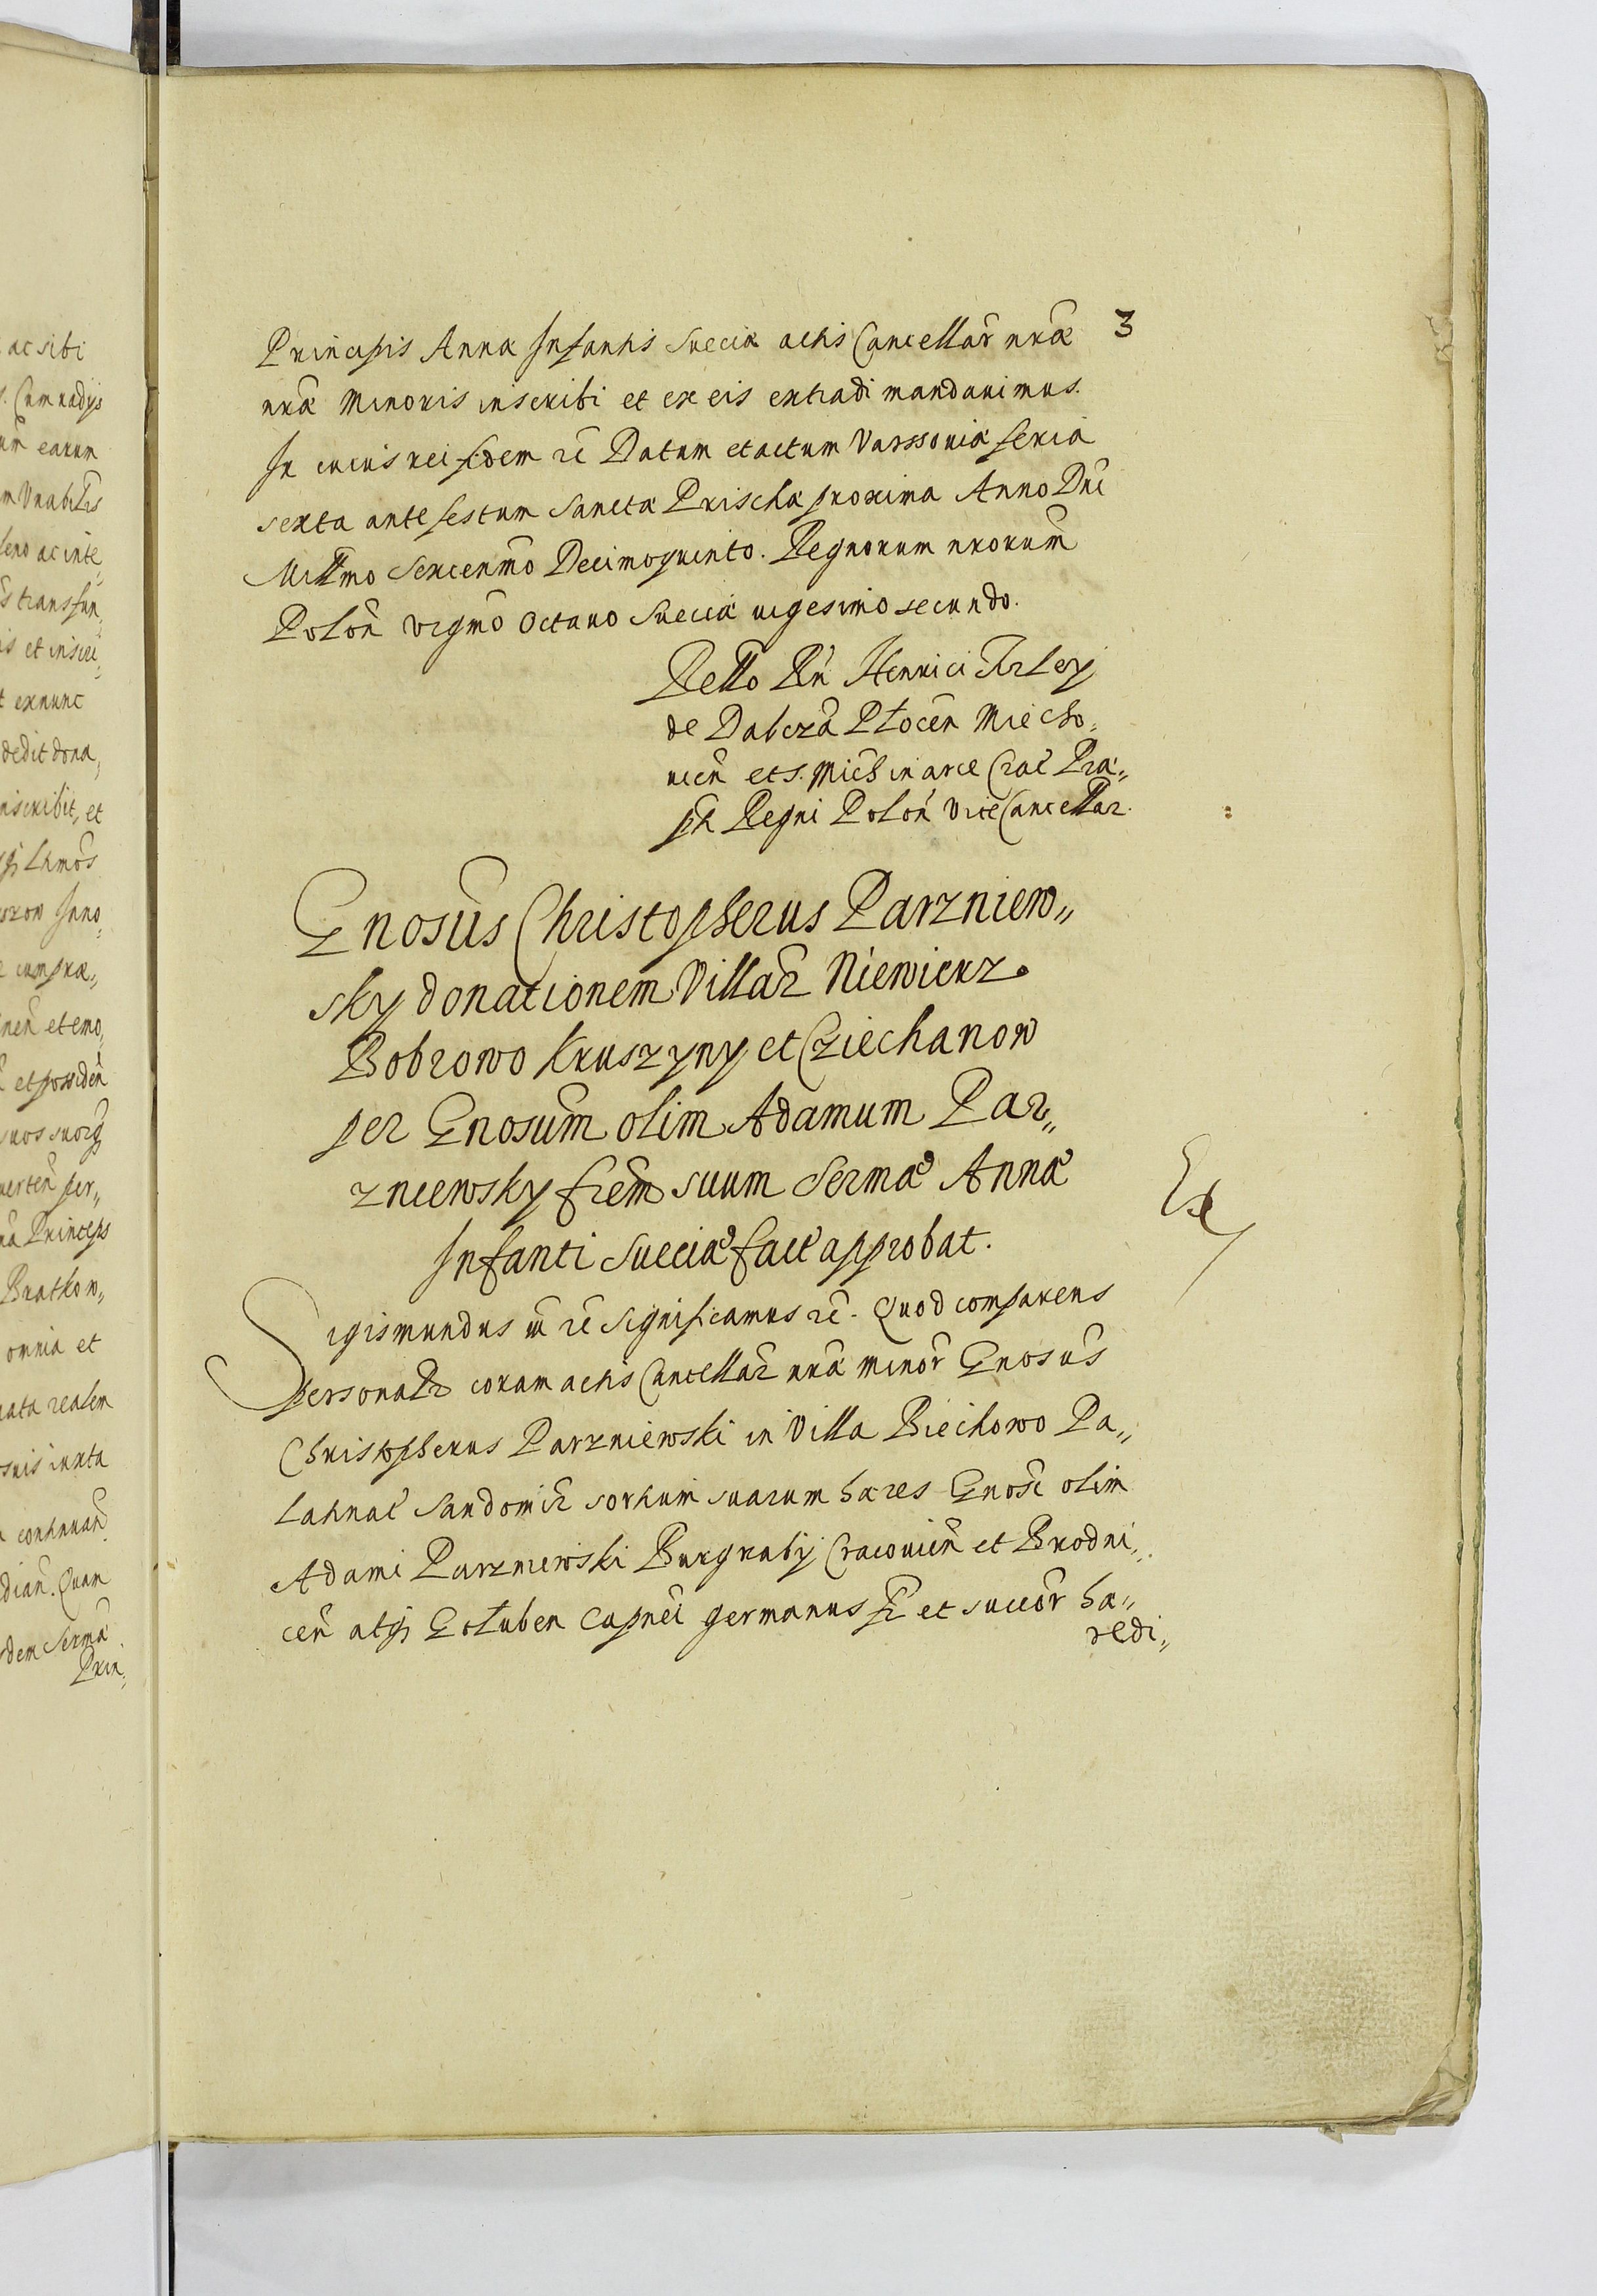 ac sibi
Cum radijs
earum
Vnabilis
ac inte„
transfun„
is et inscri„
exnunc
dedit dona„
inscribit, et
Inno„
cum præ„
et emo„
et possiden̄
suos suorq̃
per„
Princeps
Bratkow„
omnia et
realem
iuxta
continuan̄
Quam
Serma
Prin„
3
Principis Annæ Infantis Sueciæ actis Cancellar̃ nr̃æ
nr̃æ Minoris inscribi et ex eis extradi mandauimus.
In cuius rei fidem rc̃ Datum et actum Varssouiæ feria
sexta ante festum Sanctæ Prischæ proxima Anno Dni
Mill̃mo Sexcenmo Decimoquinto. Regnorum nr̃orum
Polon̄ vigmo Octauo Sueciæ uigesimo secundo.
Rello Rn̄ Henrici Firley
de Dabrza Płocen̄ Miecho„
uien̄ et S. Mich in arce Crac̄ Præ„
pti Regni Polon̄ ViceCancellar.
Gnosus Christopherus Parzniew„
sky donationem Villar̃ Niewierz
Bobrowo Kruszyny et Cziechanow
per Gnosum olim Adamum Par„
zniewsky frem suum Sermæ Annæ
Infanti Sueciæ fact̃ approbat.
Ex
Sigismundus iii rc̃ Significamus rc̃. Quod comparens
personalr̃ coram actis Cancellar̃ nr̃æ minor̃ Gnosus
Christopherus Parzniewski in Villa Biechowo Pa„
latinat̃ Sandomir̃ sortium suarum hæres Gnosi olim
Adami Parzniewski Burgrabij Cracouien̄ et Brodni„
cen̄ atq̃ Gołuben Capnei germanus fr̃ et succor̃ hæ„
redi„